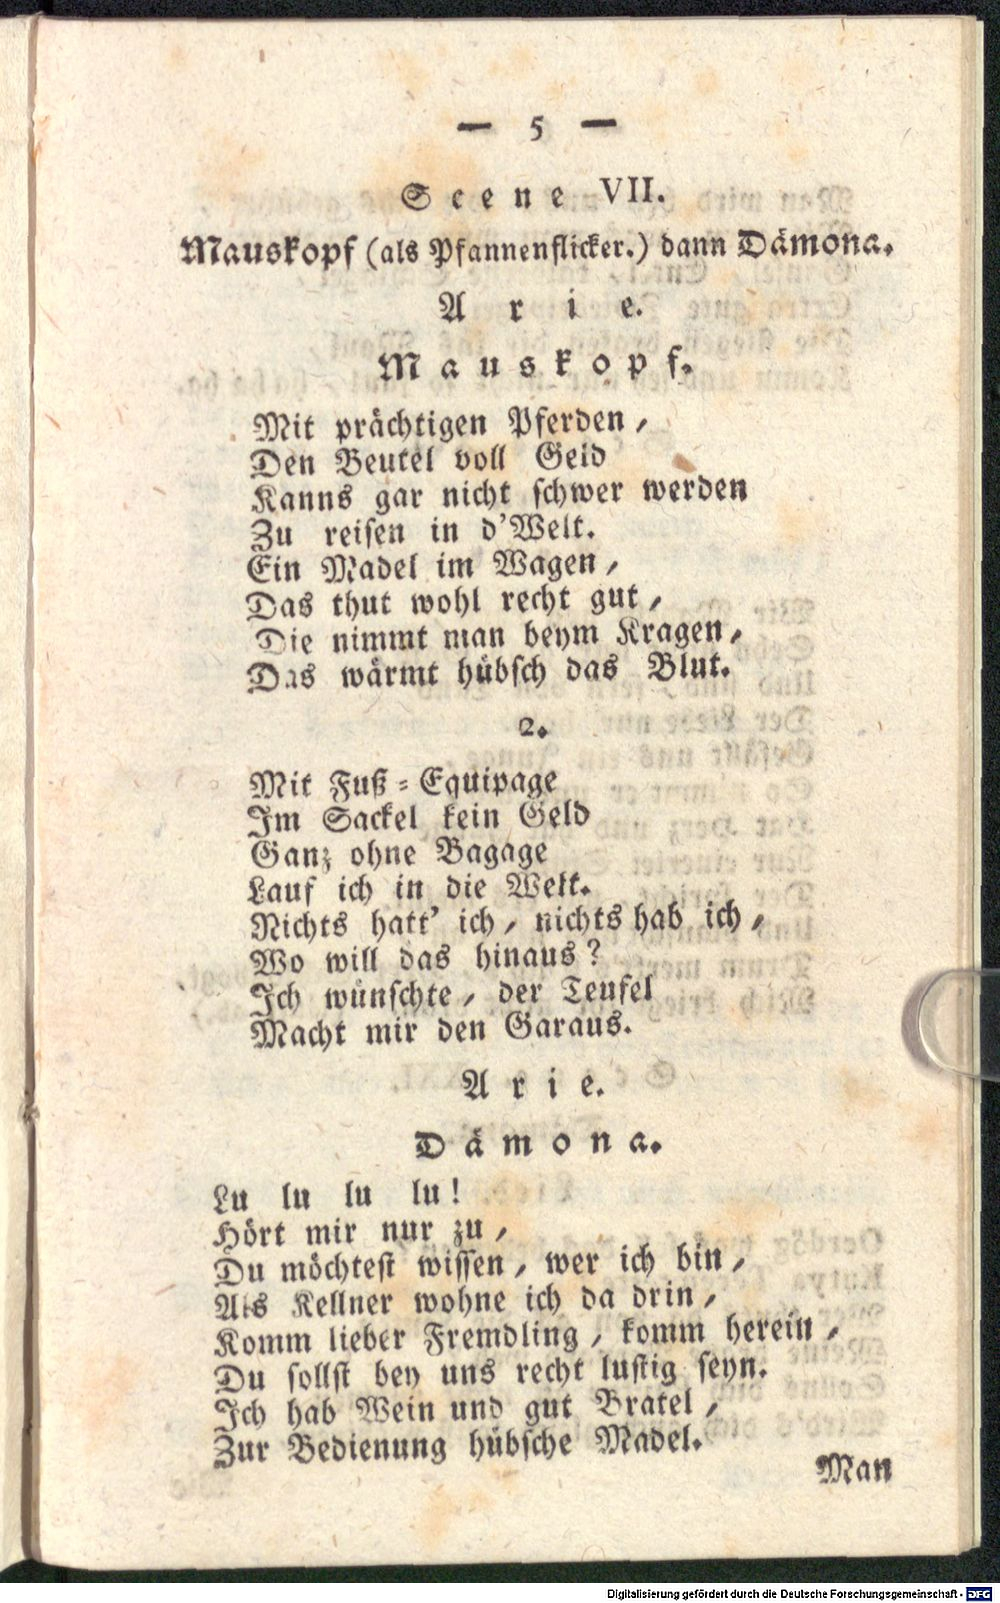 — 5 —
Scene VII.
Mauskopf (als Pfannenflicker.) dann Dämona.
Arie.
Mauskopf.
Mit prächtigen Pferden,
Den Beutel voll Geld
Kanns gar nicht schwer werden
Zu reisen in d'Welt.
Ein Madel im Wagen,
Das thut wohl recht gut,
Die nimmt man beym Kragen,
Das wärmt hübsch das Blut.
2.
Mit Fuß-Equipage
Im Sackel kein Geld
Ganz ohne Bagage
Lauf ich in die Welt.
Nichts hatt' ich, nichts hab ich,
Wo will das hinaus?
Ich wünschte, der Teufel
Macht mir den Garaus.
Arie.
Dämona.
Lu lu lu lu!
Hört mir nur zu,
Du möchtest wissen, wer ich bin,
Als Kellner wohne ich da drin,
Komm lieber Fremdling, komm herein,
Du sollst bey uns recht lustig seyn.
Ich hab Wein und gut Bratel,
Zur Bedienung hübsche Madel.
Man
Digitalisierung gefördert durch die Deutsche Forschungsgemeinschaft - DFG